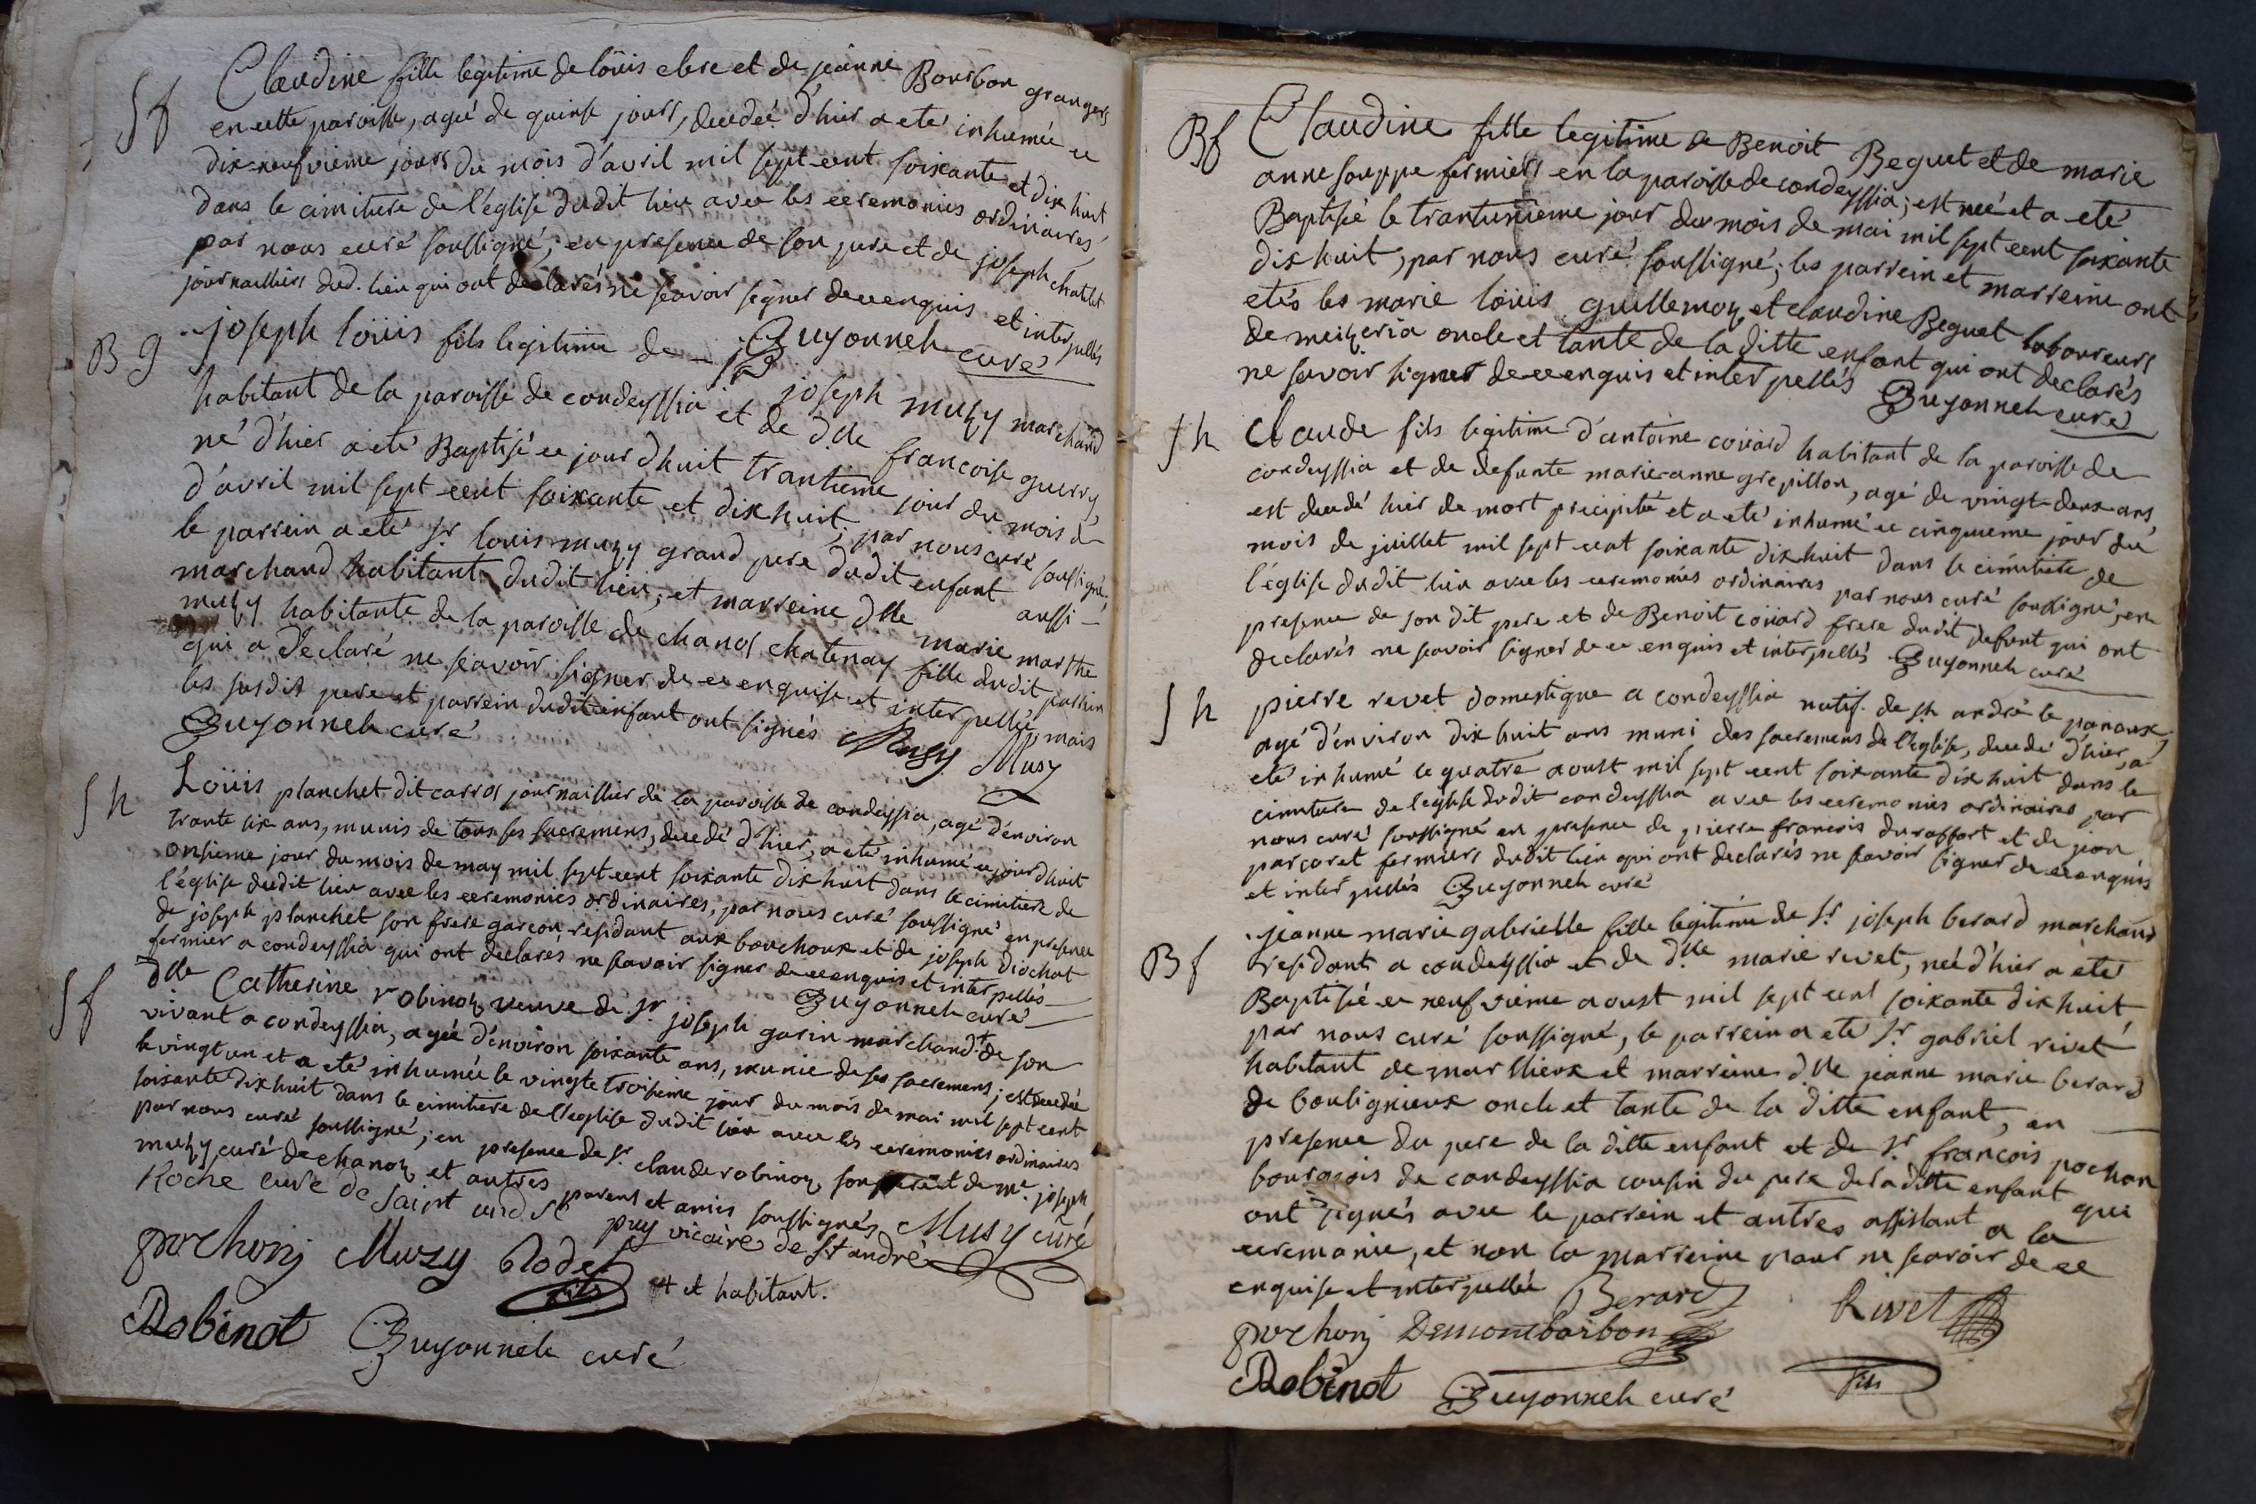 Sf
Claudine fille legitime de loüis clerc et de jeanne Bourbon grangers
en cette paroisse, agée de quinse jours, decedée d'hier a eté inhumée ce
dix neufvieme jours du mois d'avril mil sept cent soixante et dix huit
dans le cimitiere de l'eglise dudit lieu avec les ceremonies ordinaires,
par nous curé soussigné; en presence de son pere et de joseph chatlet
journailliers dud. lieu qui ont declarés ne sçavoir signer de ce enquis et interpellés
Guyonneh curé
B g
joseph loüis fils legitime de joseph muzy marchand
habitant de la paroisse de condeyssia et de dlle francoise guerry
né d'hier a eté Baptisé ce jourdhuit trantieme jour du mois de
d'avril mil sept cent soixante et dix huit, par nous curé soussigné;
le parrein a eté sr louis muzy grand pere dudit enfant aussi
marchand habitant dudit lieu; et marreine dlle marie marthe
muzy habitante de la paroisse de chanos chatenay fille dudit parrin
qui a declaré ne sçavoir signer de ce enquise et interpellée, mais
les susdit pere et parrein dudit enfant ont signés Muzy Musy
Guyonneh curé
S h
Loüis planchet dit carros journaillier de la paroisse de condeyssia, agé d'environ
trante six ans, munis de tous ses sacremens, decedé d'hier, a eté inhumé ce jourdhuit
onsieme jour du mois de may mil sept cent soixante dix huit dans le cimitiere de
l'église dudit lieu avec les ceremonies ordinaires, par nous curé soussigné en presence
de joseph planchet son frere garcon residant aux bouchoux et de joseph diochat
fermier a condeyssia qui ont declarés ne savoir signer de ce enquis et interpellés
Guyonneh curé
Sf
dlle Catherine robinoz veuve de sr joseph garin marchand de son
vivant a condeyssia, agée d'environ soixante ans, munie de ses sacremens; est decedée
le vingt un et a eté inhumée le vingte troisieme jour du mois de mai mil sept cent
soixante dix huit dans le cimitiere de l'eglise dudit lieu avec les ceremonies ordinaires
par nous curé soussigné; en presence de sr claude robinoz son et de mr. joseph
muzy curé de chanoz et autres parens et amis soussignés Musy curé
Roche curé de saint puy vicaire de st andré
pochonj Muzy Rodet
fils et habitant.
Robinot Guyonneh curé
Bf
Claudine fille legitime de Benoit Beguet et de marie
anne souppe fermiers en la paroisse de condeyssia; est née et a eté
Baptisée le trantunieme jour du mois de mai mil sept cent soixante
dix huit, par nous curé soussigné; les parrein et marreine ont
etés les marie loüis guillemoz et claudine Beguet laboureurs
de meizeria oncle et tante de la ditte enfant qui ont declarés
ne savoir signer de ce enquis et interpellés Guyonneh curé
S h
Claude fils legitime d'antoine coüard habitant de la paroisse de
condeyssia et de defunte marie-anne grepillon, agé de vingt-deux ans,
est decedé hier de mort precipitée et a eté inhumé ce cinquieme jour du
mois de juillet mil sept cent soixante dix huit dans le cimitiere de
l'église dudit lieu avec les ceremonies ordinaires par nous curé soussigné, en
presence de son dit pere et de Benoit coüard frere dudit defunt qui ont
declarés ne sçavoir signer de ce enquis et interpellés Guyonneh curé
S h
pierre revet domestique a condeyssia natif de st andré le panoux
agé d'environ dix huit ans muni des sacremens de l'église, decedé d'hier, a
eté inhumé le quatre aoust mil sept cent soixante dix huit dans le
cimitiere de l'eglise dudit condeyssia avec les ceremonies ordinaires par
nous curé soussigné en presence de pierre francois duraffort et de jean
parcoret fermiers dudit lieu qui ont declarés ne savoir signer de ce enquis
et interpellés Guyonneh curé
Bf
jeanne marie gabrielle fille legitime de sr joseph berard marchand
residant a condeyssia et de dlle marie rivet, née d'hier a eté
Baptisée ce neufvieme aoust mil sept cent soixante dix huit
par nous curé soussigné, le parrein a eté sr gabriel rivet
habitant de marlhieux et marreine dlle jeanne marie berard
de bouligneux oncle et tante de la ditte enfant, en
presence du pere de la ditte enfant et de sr françois pochon
bourgois de condeyssia cousin du pere de la ditte enfant qui
ont signés avec le parrein et autres assistant a la
ceremonie, et non la marreine pour ne scavoir de ce
enquise et interpellée Berard Rivet
pochonj Demombarbon
Robinot Guyonneh curé fils